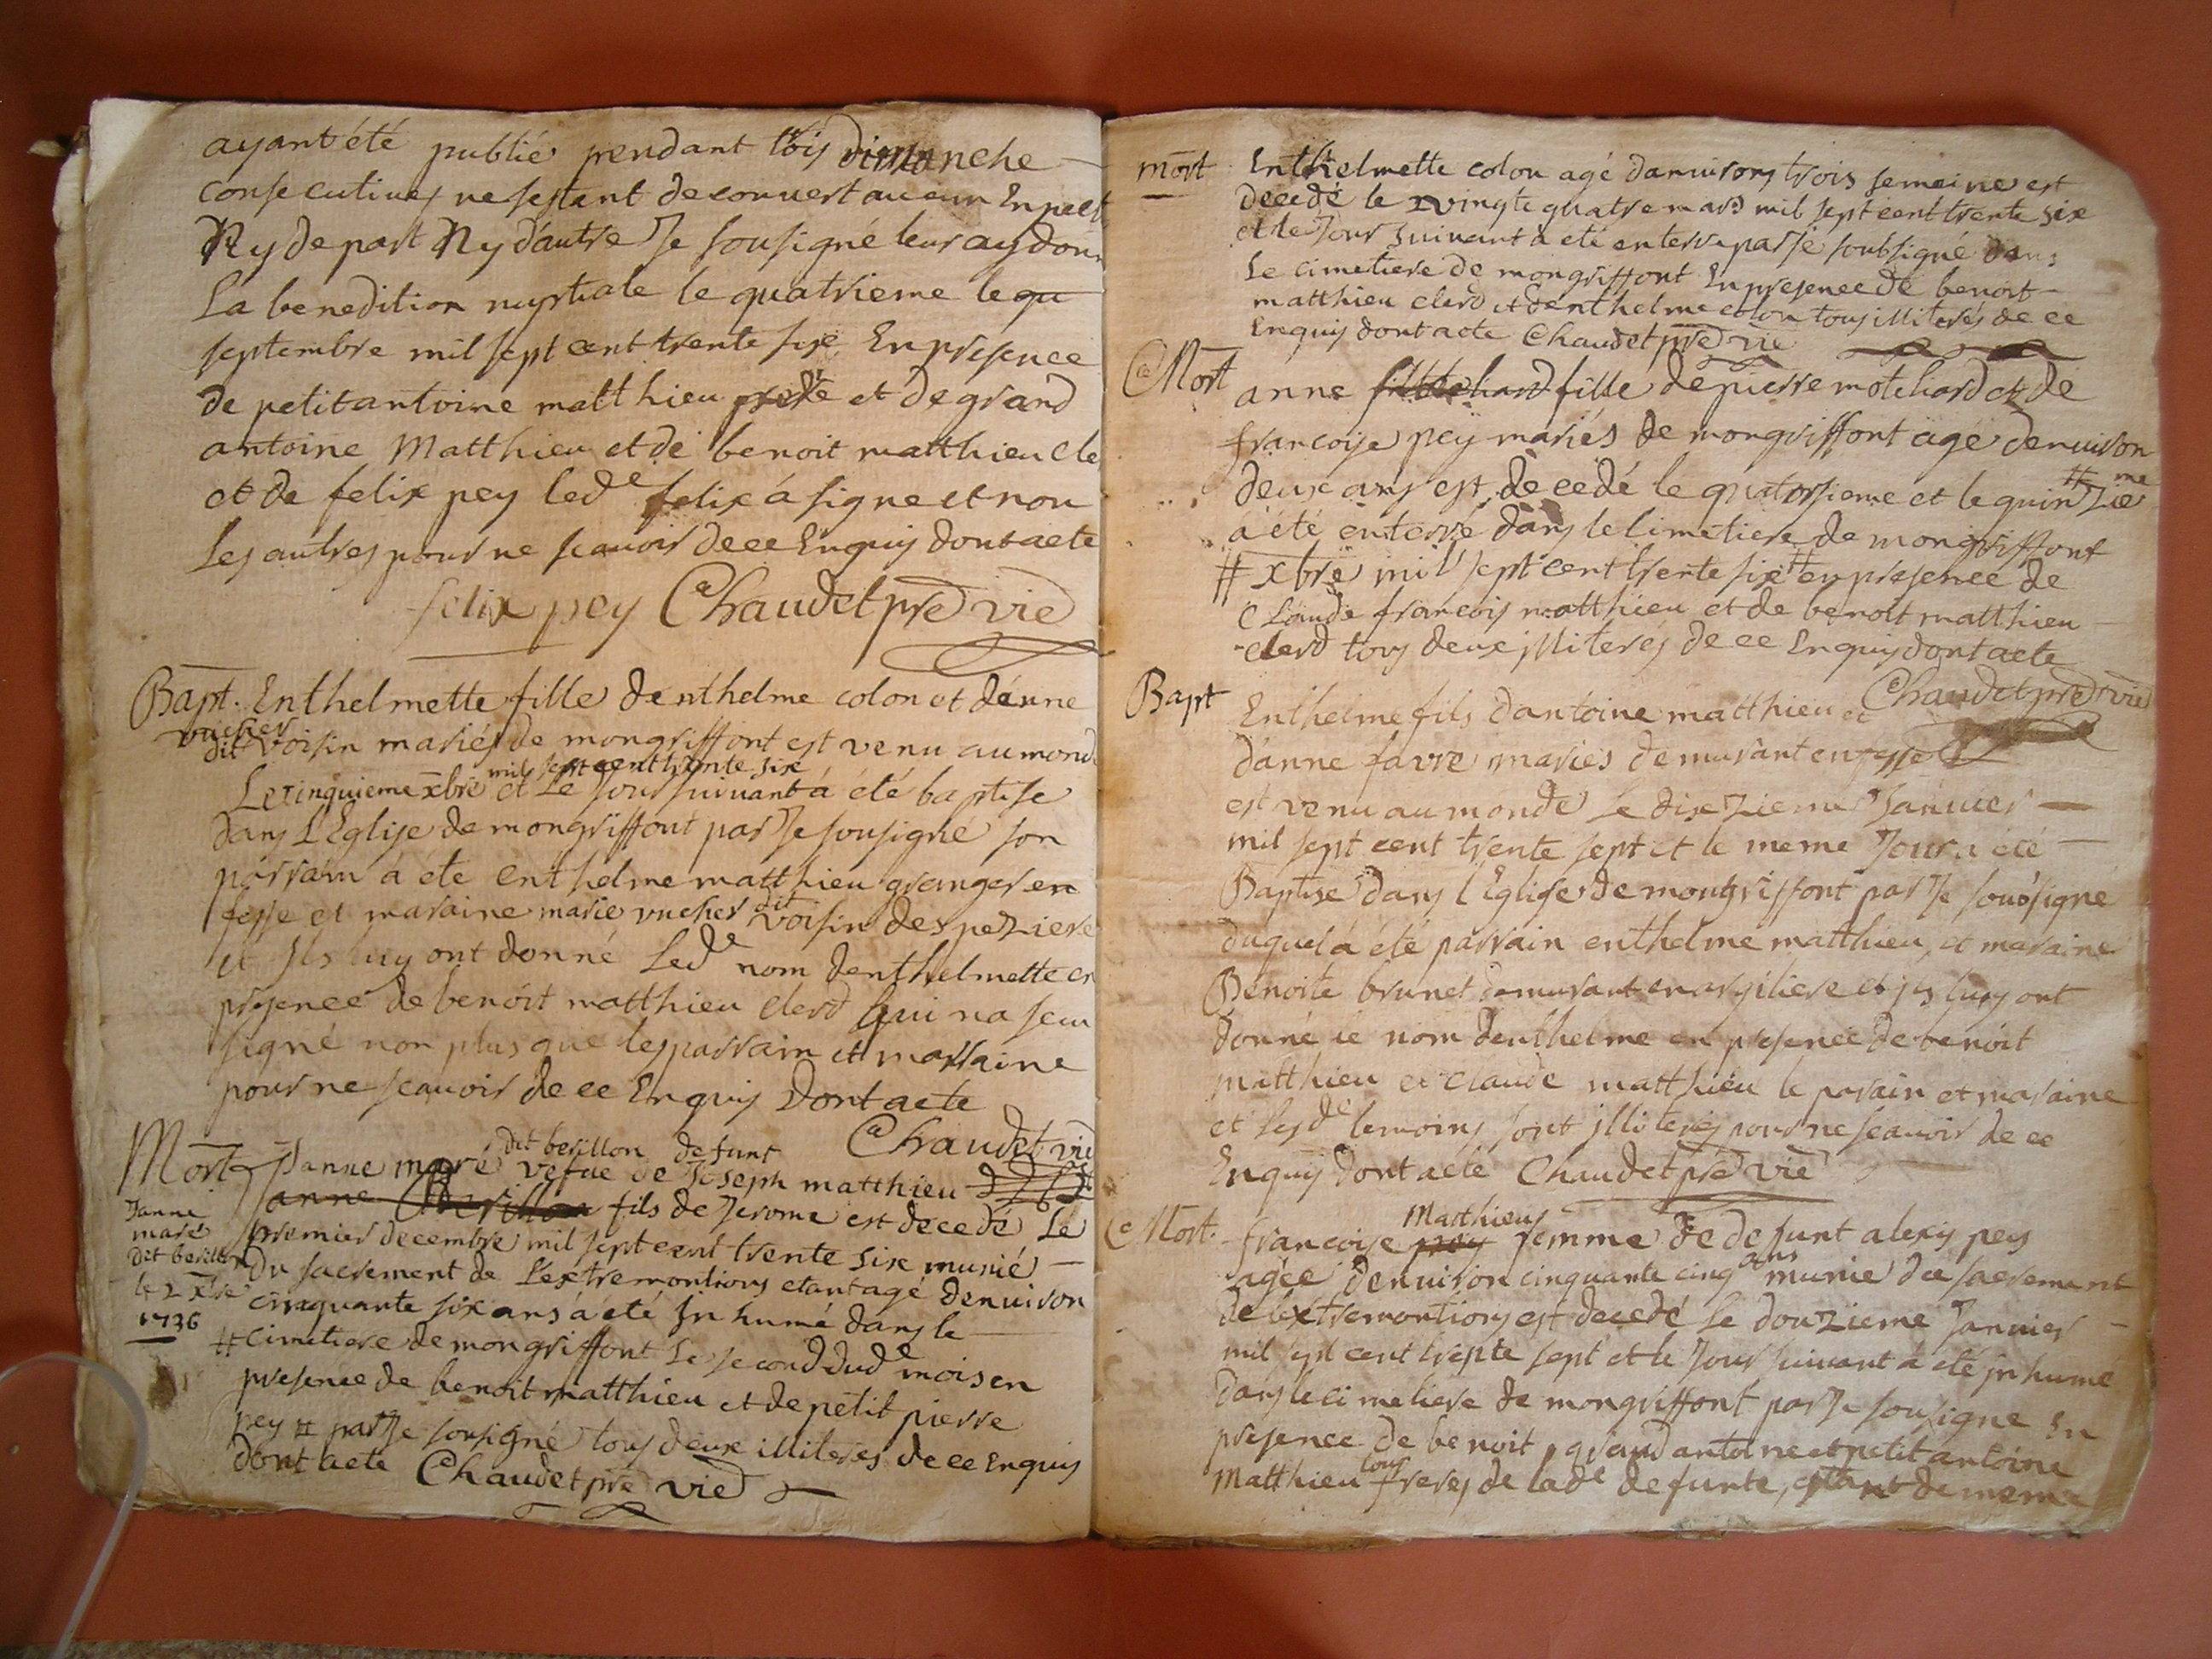 ayant été publié pendant trois dimanche
consecutives ne sestant decouvert aucun Enpec
Ny de part Ny d'autre Je sousigné leur ay donn
La benedition nuptiale le quatrieme
septembre mil sept cent trente six En presence
de petit antoine matthieu et de grand
antoine Matthieu et de benoit matthieu cle
et de felix pey led.e felix á signe et non
Les autres pour ne scavoir de ce Enquis dont acte
felix pey Chaudet pre vic
Bapt. Enthelmette fille denthelme colon et d'anne
vucher
dit voisin mariés de mongriffont est venu au monde
mil sept cent trente six
Le cinquieme xbre et Le jour suivant á été baptise
dans L'Eglise de mongriffont par Je sousigné son
parrain á eté enthelme matthieu granger en
fesse et maraine marie vucher dit voisin des peziere
et Ils luy ont donné Led.e nom denthelmette en
presence de benoit matthieu clerd qui na sceu
signé non plus que les parrain et marraine
pour ne scavoir de ce Enquis Dont acte
Chaudet vic
Mort
Janne maré dit berillon vefue de defunt Joseph matthieu
fils de Jerome est decedé Le
Janne
maré
dit berillon
le 2 xbre
1736
premier decembre mil sept cent trente six munié
du sacrement de L'extremontions etant agé denuiron
cinquante six ans á été Inhumé dans le
# cimetiere de mongriffont Le second dud.e mois en
presence de benoit matthieu et de petit pierre
pey # par Je sousigné tous deux illiteres de ce Enquis
dont acte Chaudet pre vic
mort Enthelmette colon agé danvirons trois semaine est
decedé le vingte quatre mars mil sept cent trente six
et le Jour suivant á eté enterre par Je soubsigné dans
Le cimetiere de mongriffont En presence de benoit
matthieu clerd et denthelme colon tous illiterés de ce
Enquis dont acte Chaudet pre vic
Mort anne fille de pierre motchard et de
francoise pey mariés de mongriffont agé denuiron
deux ans est decedé le quatorsieme et le quinzie me #
á été enterré dans le cimetiere de mongriffont
# xbre mil sept cent trente six # en presence de
Claude francois matthieu et de benoit matthieu
clerd tous deux illiterés de ce Enquis dont acte
Chaudet pre vic
Bapt Enthelme fils dantoine matthieu et
d'anne favre mariés demurant en fesse
est venu au monde Le dixzieme Januier
mil sept cent trente sept et le meme Jour á été
Baptise dans l'Eglise de mongriffont par Je sousigné
duquel á été parrain enthelme matthieu, et maraine
Benoite brunet demurant en argiliere et ils luy ont
donné le nom denthelme en presence de benoit
matthieu et claude matthieu le parain et maraine
et Lesd.e temoins sont illiterés pour ne scavoir de ce
Enquis Dont acte Chaudet pre vic
Mort. francoise Matthieu femme de defunt alexis pey
agée denuiron cinquante cinq ans munie du sacrement
de l'extremontions est decedé Le douzieme Januier
mil sept cent trente sept et le Jour suivant á eté Inhume
dans le cimetiere de mongriffont par Je sousigne En
presence de benoit, grand antoine et petit antoine
Matthieu tous freres de lad.e defunte, estant de meme